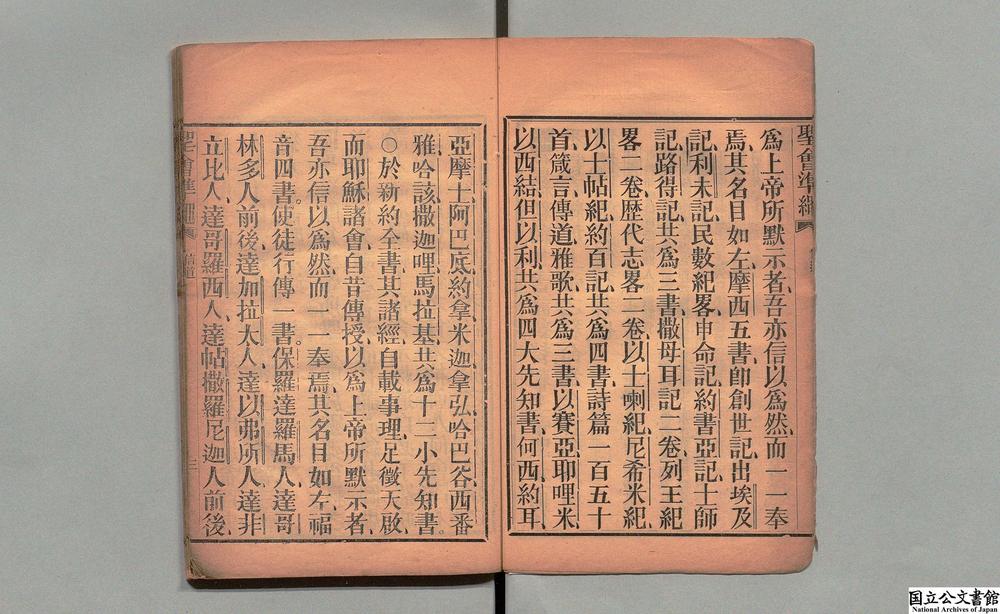 聖會準繩
爲上帝所默示者吾亦信以爲然而一一奉
焉其名目如左摩西五書卽創世記出埃及
記利未記民數紀畧申命記約書亞記士師
記路得記共爲三書撒母耳記二卷列王紀
畧二卷歷代志畧二卷以士喇紀尼希米紀
以士帖紀約百記共爲四書詩篇一百五十
首箴言傳道雅歌共爲三書以賽亞耶哩米
以西結但以利共爲四大先知書何西約耳
亞摩士阿巴底約拿米迦拿弘哈巴谷西番
雅哈該撒迦哩馬拉基共爲十二小先知書
○於新約全書其諸經自載事理足徵天啟
而耶穌諸會自昔傳授以爲上帝所默示者
吾亦信以爲然而一一奉焉其名目如左福
音四書使徒行傳一書保羅達羅馬人達哥
林多人前後達加拉太人達以弗所人達非
立比人達哥羅西人達帖撒羅尼迦人前後
聖會準繩
信道
三
国立公文書館
National Archives of Japan